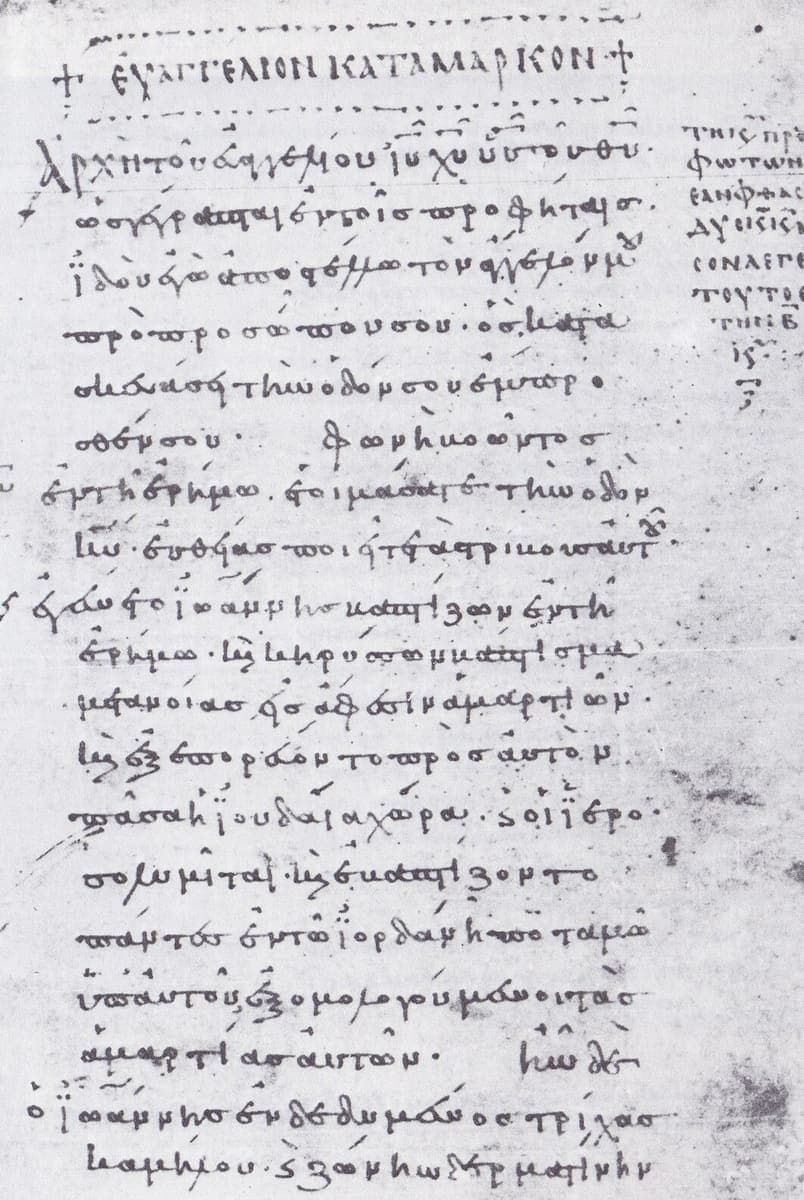 + ΕΥΑΓΓΕΛΙΟΝ ΚΑΤΑ ΜΑΡΚΟΝ +
Ἀρχὴ τοῦ εὐαγγελίου ἰυ χυ υἱοῦ τοῦ θυ.
ὡς γέγραπται ἐν τοῖς προφήταις.
ἰδοὺ ἐγὼ ἀποστέλλω τὸν ἄγγελόν μου
πρὸ προσώπου σου. ὃς κατα
σκευάσει τὴν ὁδόν σου ἔμπρο
σθέν σου. φωνὴ βοῶντος
ἐν τῇ ἐρήμω. ἑτοιμάσατε τὴν ὁδὸν
κυ. εὐθείας ποιεῖτε τὰς τρίβους αὐτοῦ.
ἐγένετο ἰωάννης βαπτίζων ἐν τῇ
ἐρήμω. καὶ κηρύσσων βάπτισμα
μετανοίας εἰς ἄφεσιν ἁμαρτιῶν.
καὶ ἐξεπορεύοντο πρὸς αὐτὸν
πᾶσα ἡ ἰουδαία χώρα. καὶ οἱ ἱερο
σολυμῖται. καὶ ἐβαπτίζοντο
πάντες ἐν τῶ ἰορδάνη ποταμῶ
ὑπ' αὐτοῦ ἐξομολογούμενοι τὰς
ἁμαρτίας αὐτῶν. ἦν δὲ
ὁ ἰωάννης ἐνδεδυμένος τρίχας
καμήλου. καὶ ζώνην δερματίνην
τῆς πρ
φωτων
δυ
τοῦτο